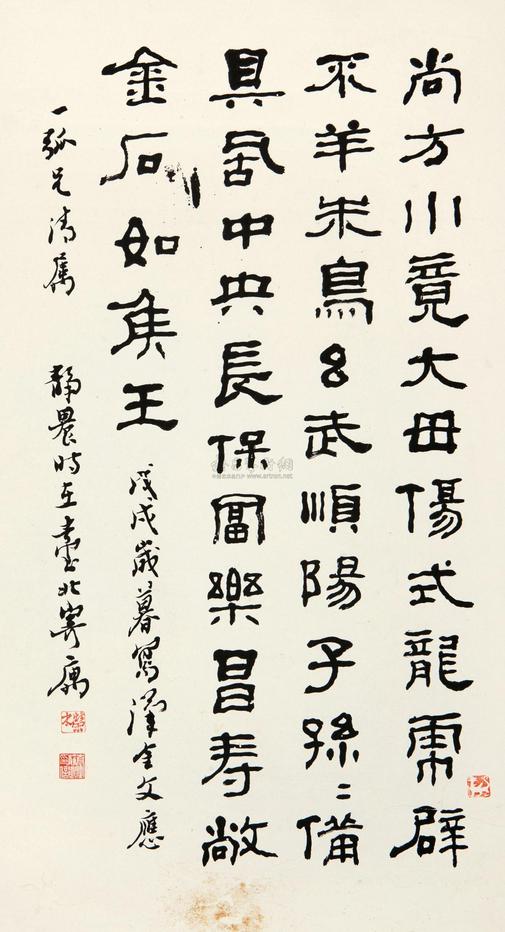 尚方小竟大毋傷式龍虎辟
不羊朱鳥玄武順陽子孫〻備
具居中央長保冨樂昌寿敞
金石如侯王 戊戌歲暮寫漢金文應
一弧兄清属 靜農時在臺北